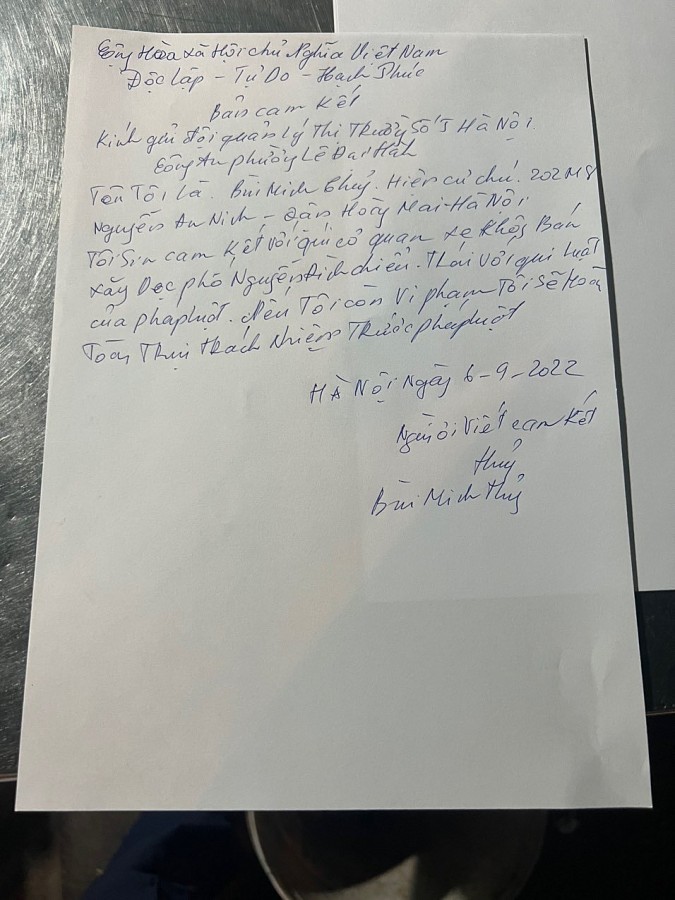 Cộng Hòa xã Hội chủ Nghĩa Việt Nam
Độc lập - Tự Do - Hạch Phúc
Bản cam kết
Kính gửi đội quản lý Thị Trường Số 5 Hà Nội.
Công An phường Lê Đại Hàh
Tên Tôi là. Bùi Minh Thủy. Hiện cư chú. 202
Nguyễn An Ninh - Quận Hoàng Mai - Hà Nội
Tôi Sin cam kết với quí cơ quan xẽ không Bán
xăng Dọc phố Nguyễn Đình chiểu. Thái với qui luật
của pháp luột. Nếu Tôi còn vi phạm Tôi sẽ Hoàn
Toàn Thụi trách Nhiệm Trước pháp luột
Hà Nội Ngày 6-9-2022
Người viết cam kết
Thủy
Bùi Minh Thủy